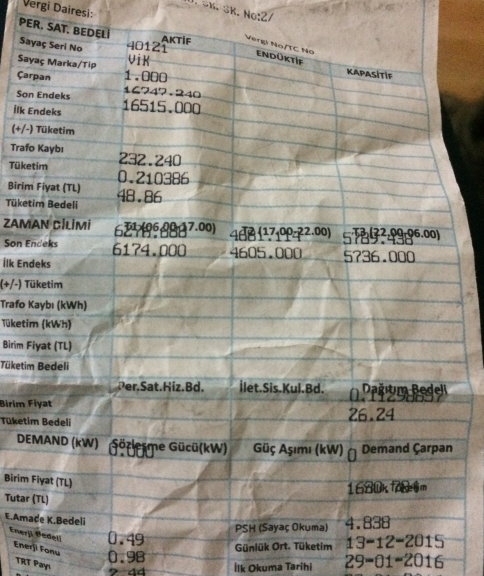 Vergi Dairesi:
SK. No:2/
Vergi No/TC No
PER. SAT. BEDELİ AKTİF ENDÜKTİF KAPASİTİF
Sayaç Seri No 40121
Sayaç Marka/Tip VİK
Çarpan 1.000
Son Endeks 16747.240
İlk Endeks 16515.000
(+/-) Tüketim
Trafo Kaybı
Tüketim 232.240
Birim Fiyat (TL) 0.210386
Tüketim Bedeli 48.86
ZAMAN DİLİMİ T1 (06.00-17.00) T2 (17.00-22.00) T3 (22.00-06.00)
Son Endeks 5789.438
İlk Endeks 6174.000 4605.000 5736.000
(+/-) Tüketim
Trafo Kaybı (kWh)
Tüketim (kWh)
Birim Fiyat (TL)
Tüketim Bedeli
Per.Sat.Hiz.Bd. İlet.Sis.Kul.Bd. Dağıtım Bedeli
Birim Fiyat
Tüketim Bedeli 26.24
DEMAND (kW) Sözleşme Gücü(kW) Güç Aşımı (kW) Demand Çarpan
0.000 0
Birim Fiyat (TL)
Tutar (TL)
E.Amade K.Bedeli
Enerji Bedeli 0.49 PSH (Sayaç Okuma) 4.838
Enerji Fonu 0.98 Günlük Ort. Tüketim 13-12-2015
TRT Payı 2.44 İlk Okuma Tarihi 29-01-2016